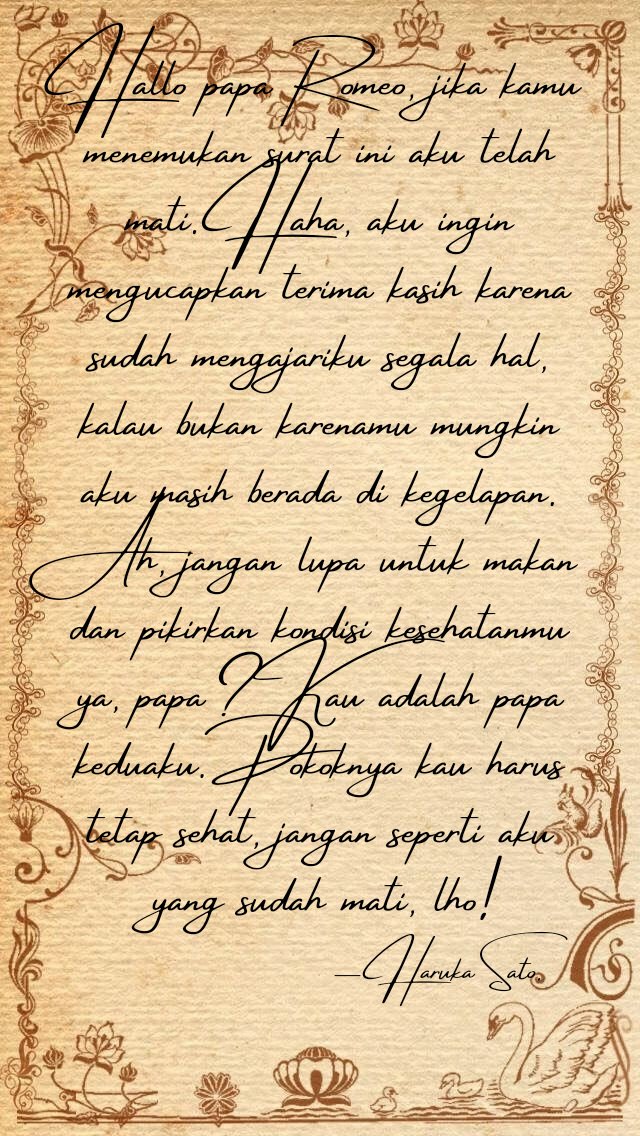 Hallo papa Romeo, jika kamu
menemukan surat ini aku telah
mati. Haha, aku ingin
mengucapkan terima kasih karena
sudah mengajariku segala hal,
kalau bukan karenamu mungkin
aku masih berada di kegelapan.
Ah, jangan lupa untuk makan
dan pikirkan kondisi kesehatanmu
ya, papa? Kau adalah papa
keduaku. Pokoknya kau harus
tetap sehat, jangan seperti aku
yang sudah mati, lho!
—Haruka Sato.